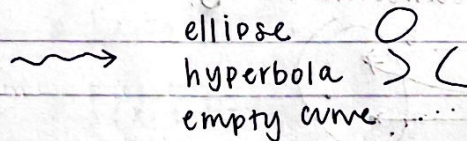 ellipse
hyperbola
empty curve